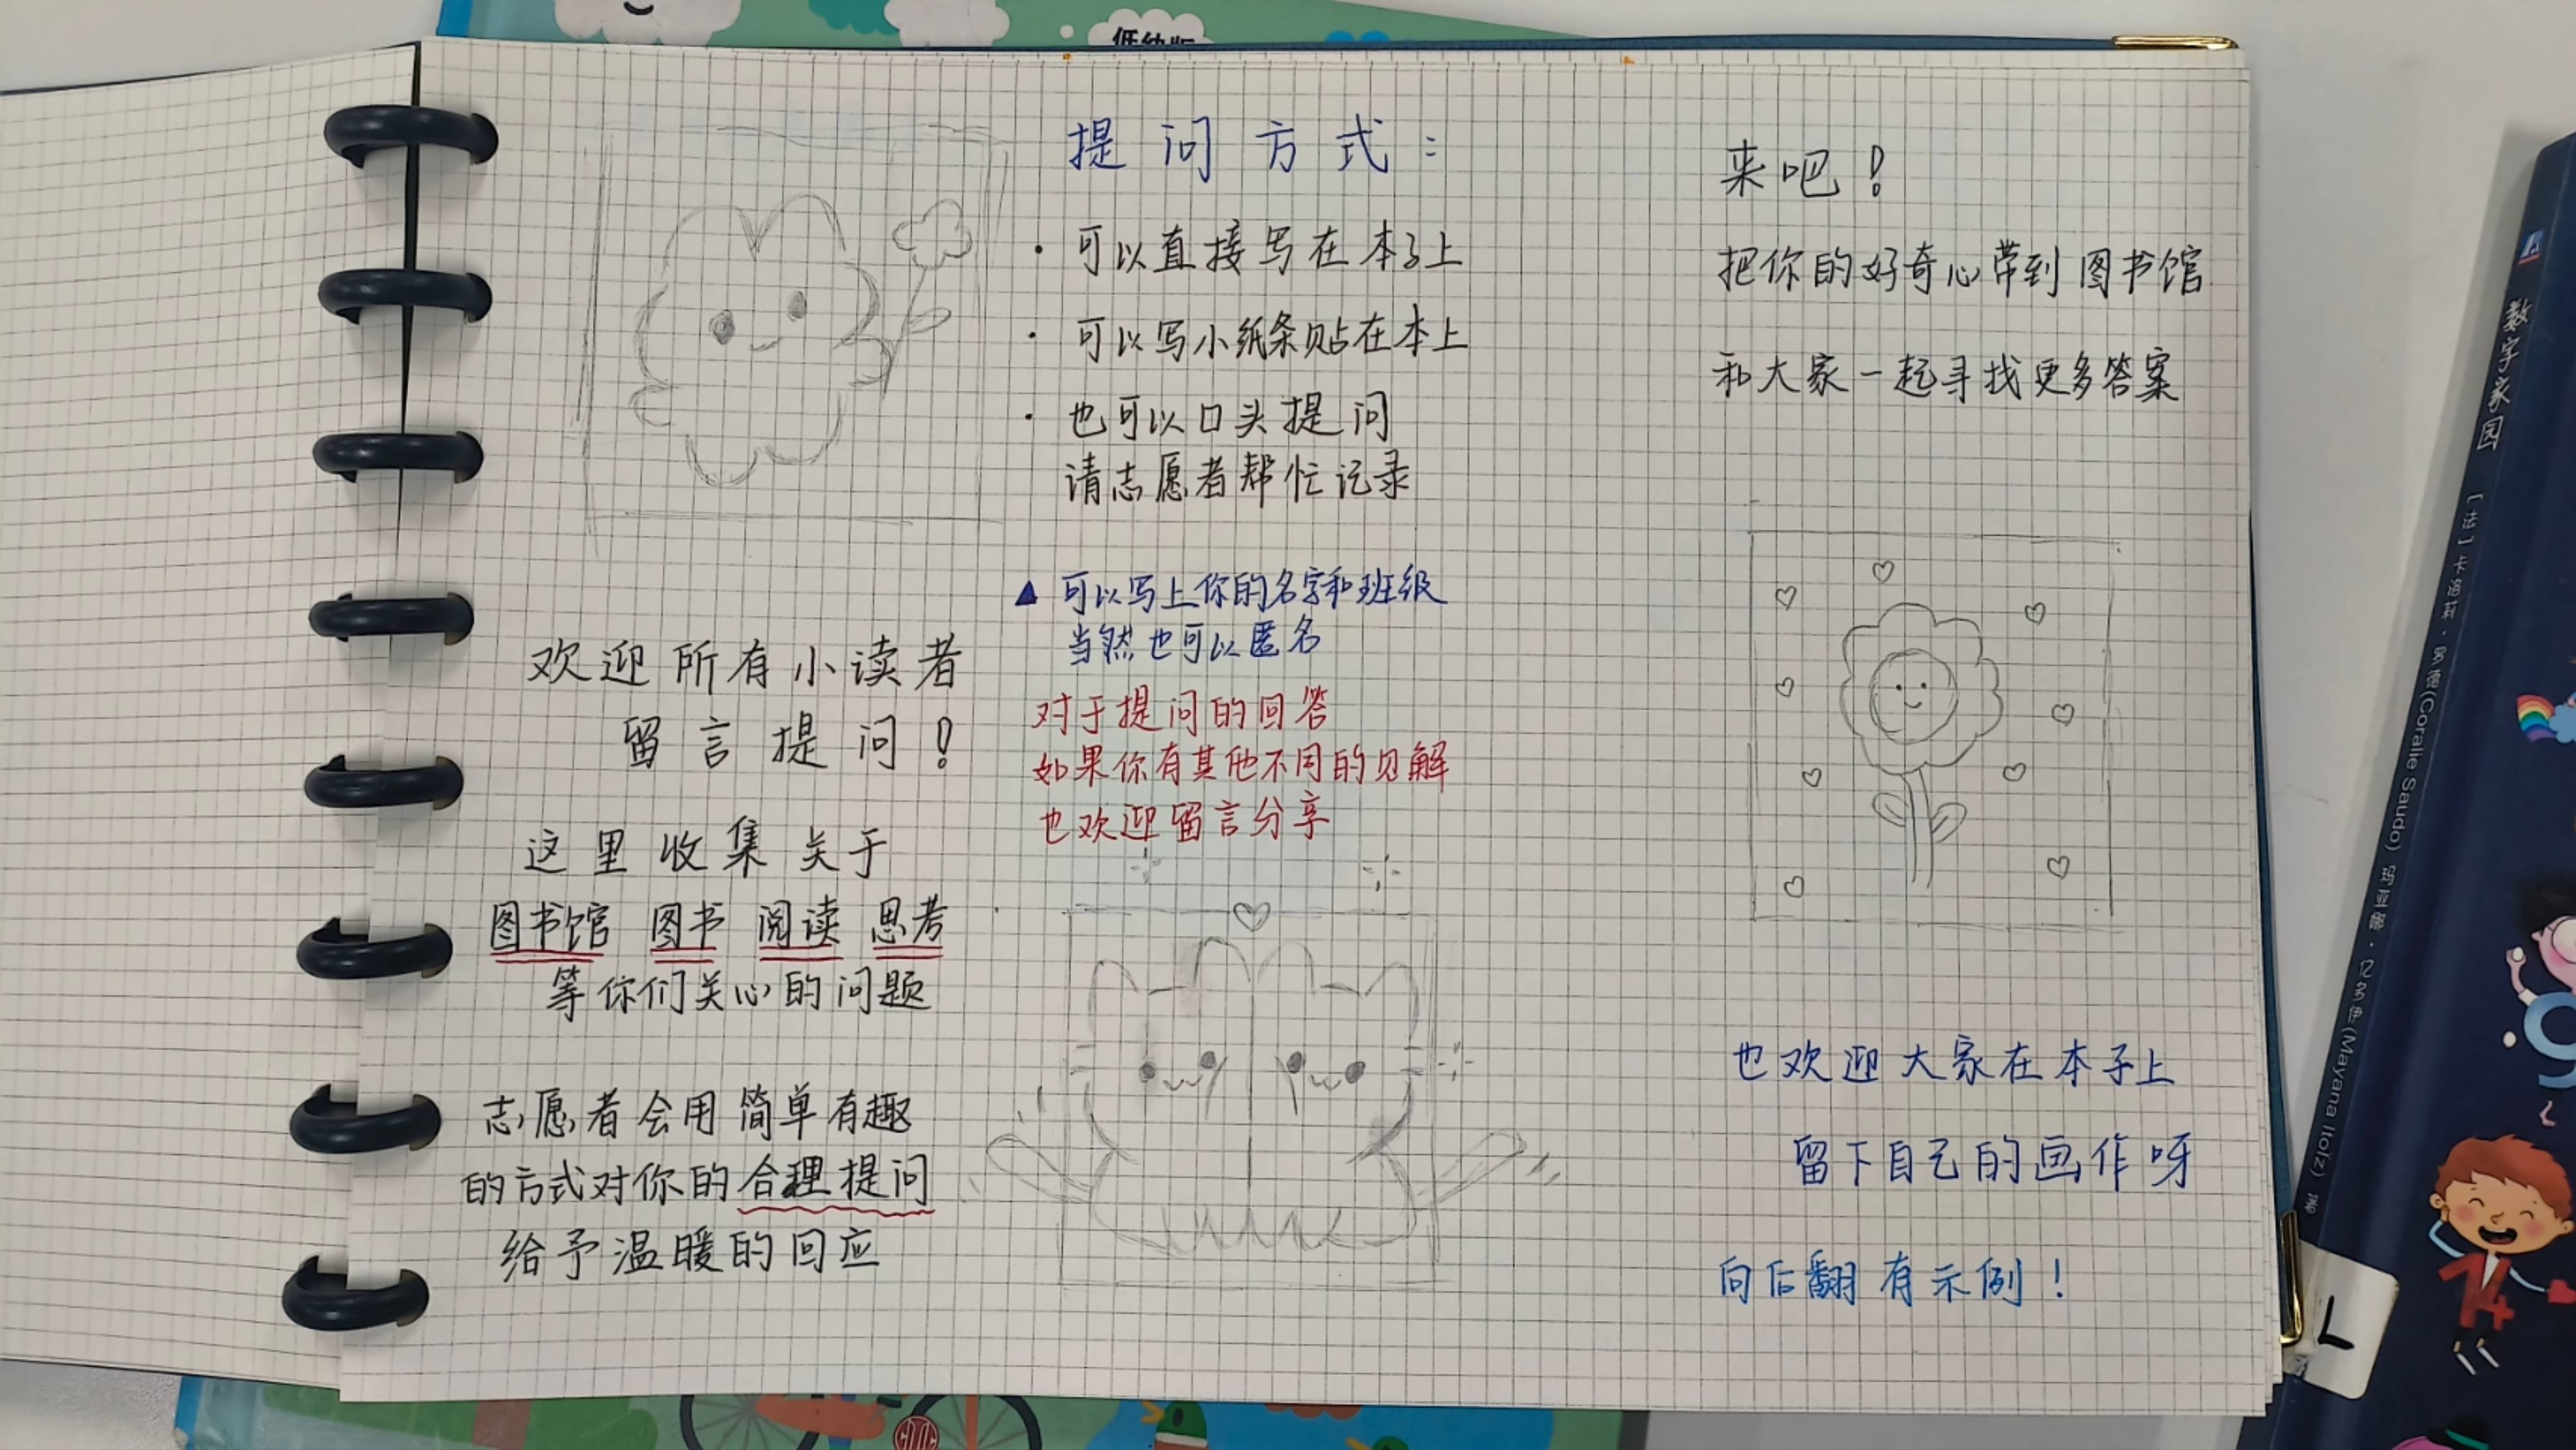 低幼版
欢迎所有小读者
留言提问！
这里收集关于
图书馆 图书 阅读 思考
等你们关心的问题
志愿者会用简单有趣
的方式对你的合理提问
给予温暖的回应
提问方式：
· 可以直接写在本子上
· 可以写小纸条贴在本上
· 也可以口头提问
请志愿者帮忙记录
▲ 可以写上你的名字和班级
当然也可以匿名
对于提问的回答
如果你有其他不同的见解
也欢迎留言分享
来吧！
把你的好奇心带到图书馆
和大家一起寻找更多答案
也欢迎大家在本子上
留下自己的画作呀
向后翻有示例！
数字家园 [法]卡洛莉·罗德(Coralie Saudo) 玛亚娜·亿多伊(Mayana Itoïz) 著
L